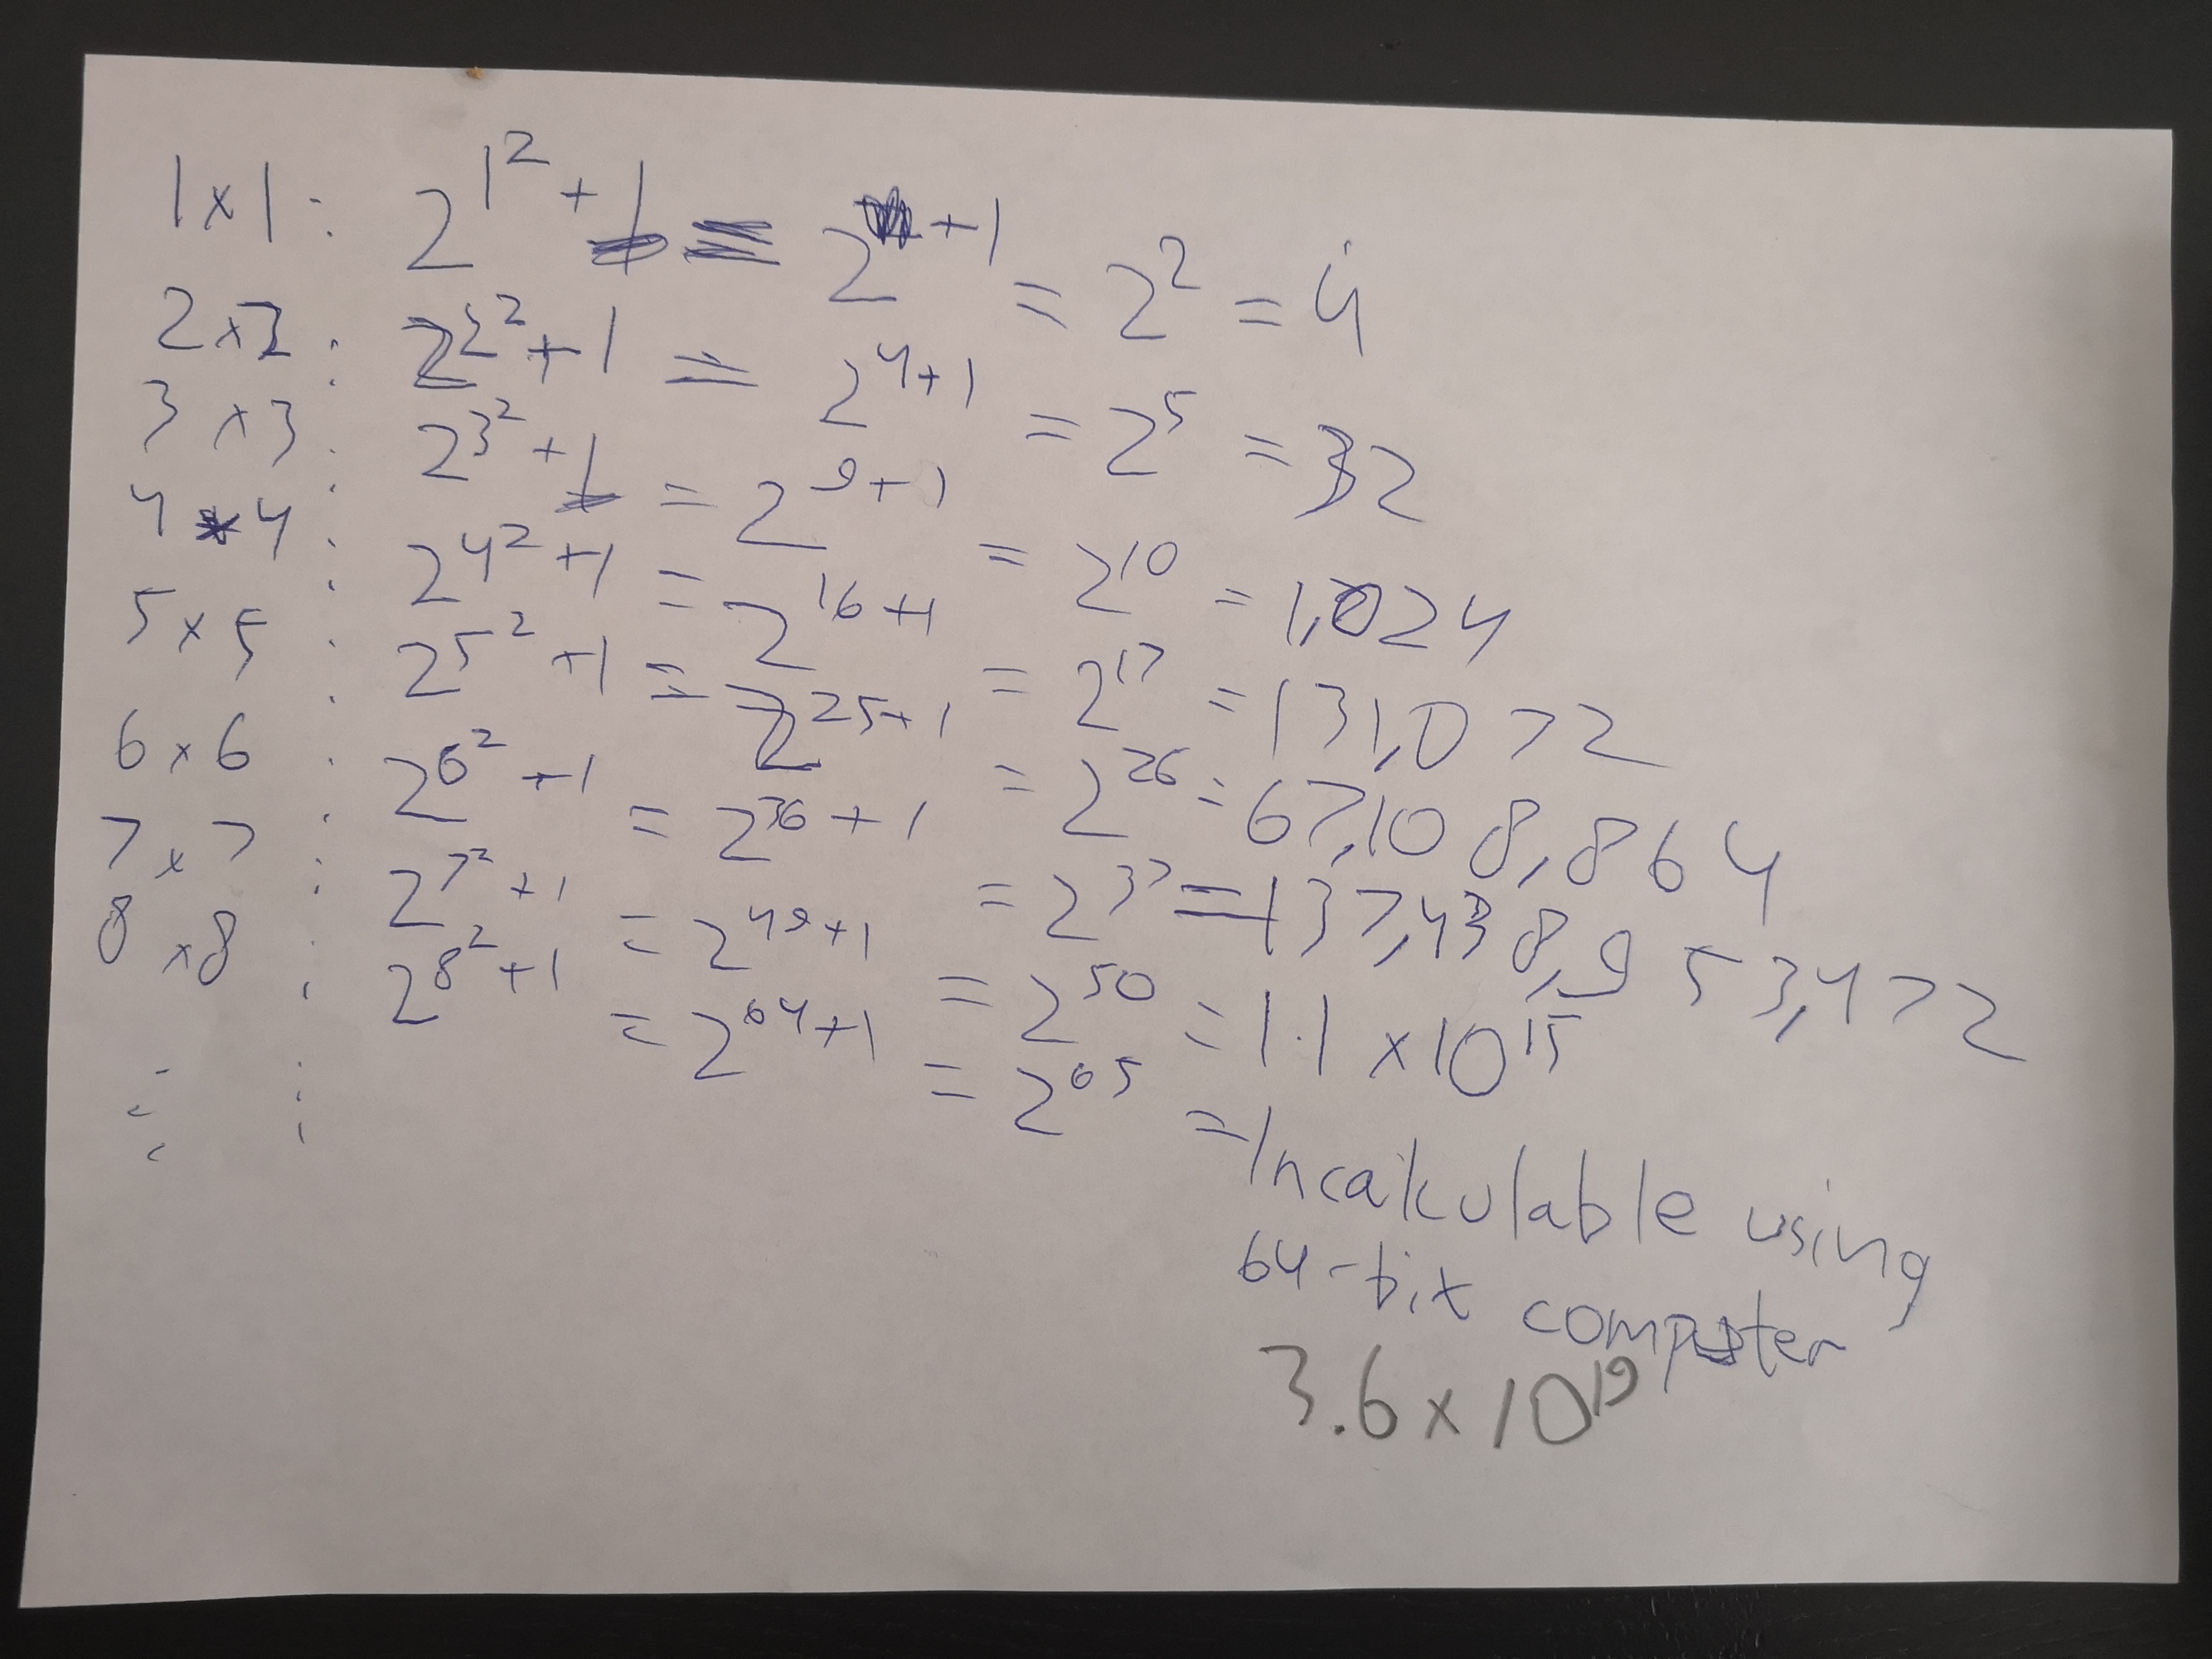 1 x 1 : 2^1^2 + 1 = 2 + 1 = 2^2 = 4
2 x 2 : 2^2^2 + 1 = 2^4+1 = 2^5 = 32
3 x 3 : 2^3^2 + 1 = 2^9+1 = 2^10 = 1,024
4 x 4 : 2^4^2 + 1 = 2^16+1 = 2^17 = 131,072
5 x 5 : 2^5^2 + 1 = 2^25+1 = 2^26 = 67,108,864
6 x 6 : 2^6^2 + 1 = 2^36+1 = 2^37 = 137,438,953,472
7 x 7 : 2^7^2 + 1 = 2^49+1 = 2^50 = 1.1 x 10^15
8 x 8 : 2^8^2 + 1 = 2^64+1 = 2^65 = Incalculable using
64-bit computer
3.6 x 10^19